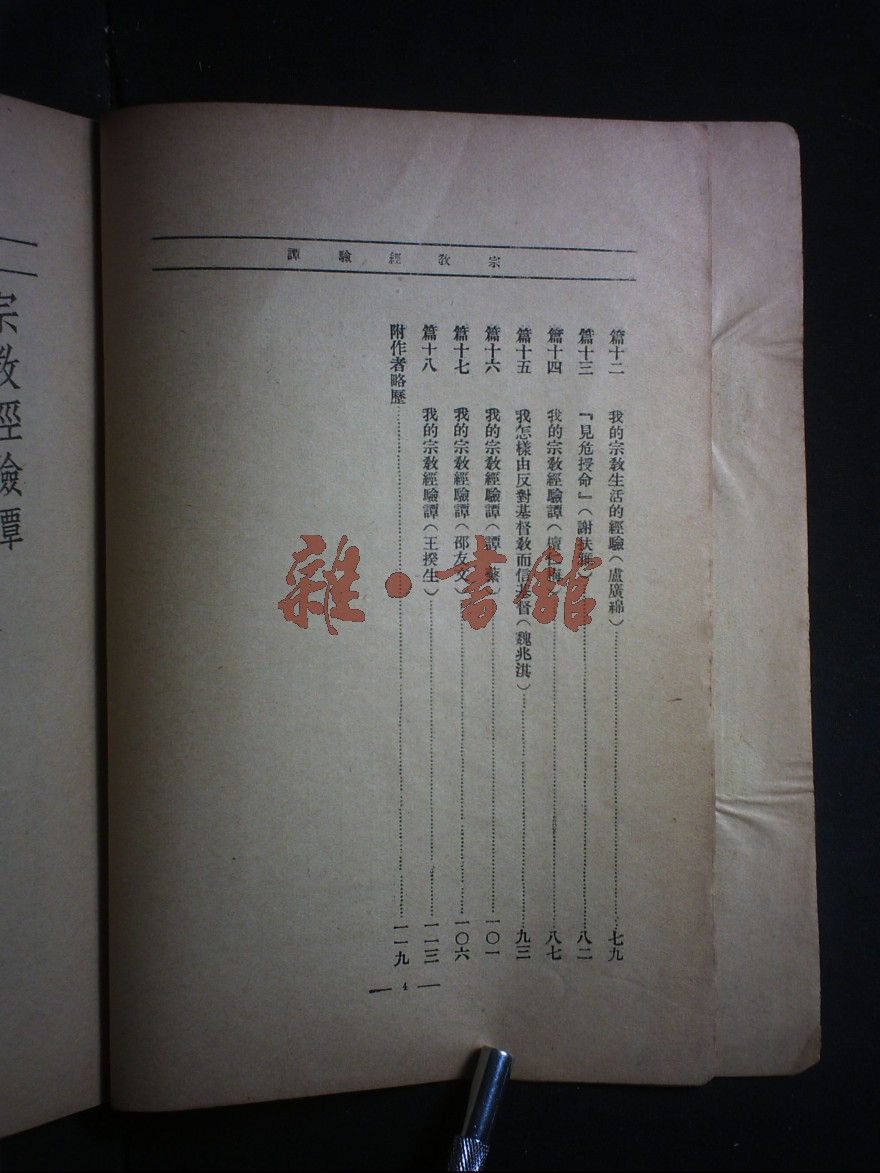 宗教經驗譚
篇十二 我的宗教生活的經驗（盧廣綿）……七九
篇十三 『見危授命』（謝扶雅）……八二
篇十四 我的宗教經驗譚（ 仁梅）……八七
篇十五 我怎樣由反對基督教而信基督（魏兆淇）……九三
篇十六 我的宗教經驗譚（譚 ）……一〇一
篇十七 我的宗教經驗譚（邵友文）……一〇六
篇十八 我的宗教經驗譚（王揆生）……一一三
附作者略歷……一一九
— 4 —
宗教經驗譚
雜·書館